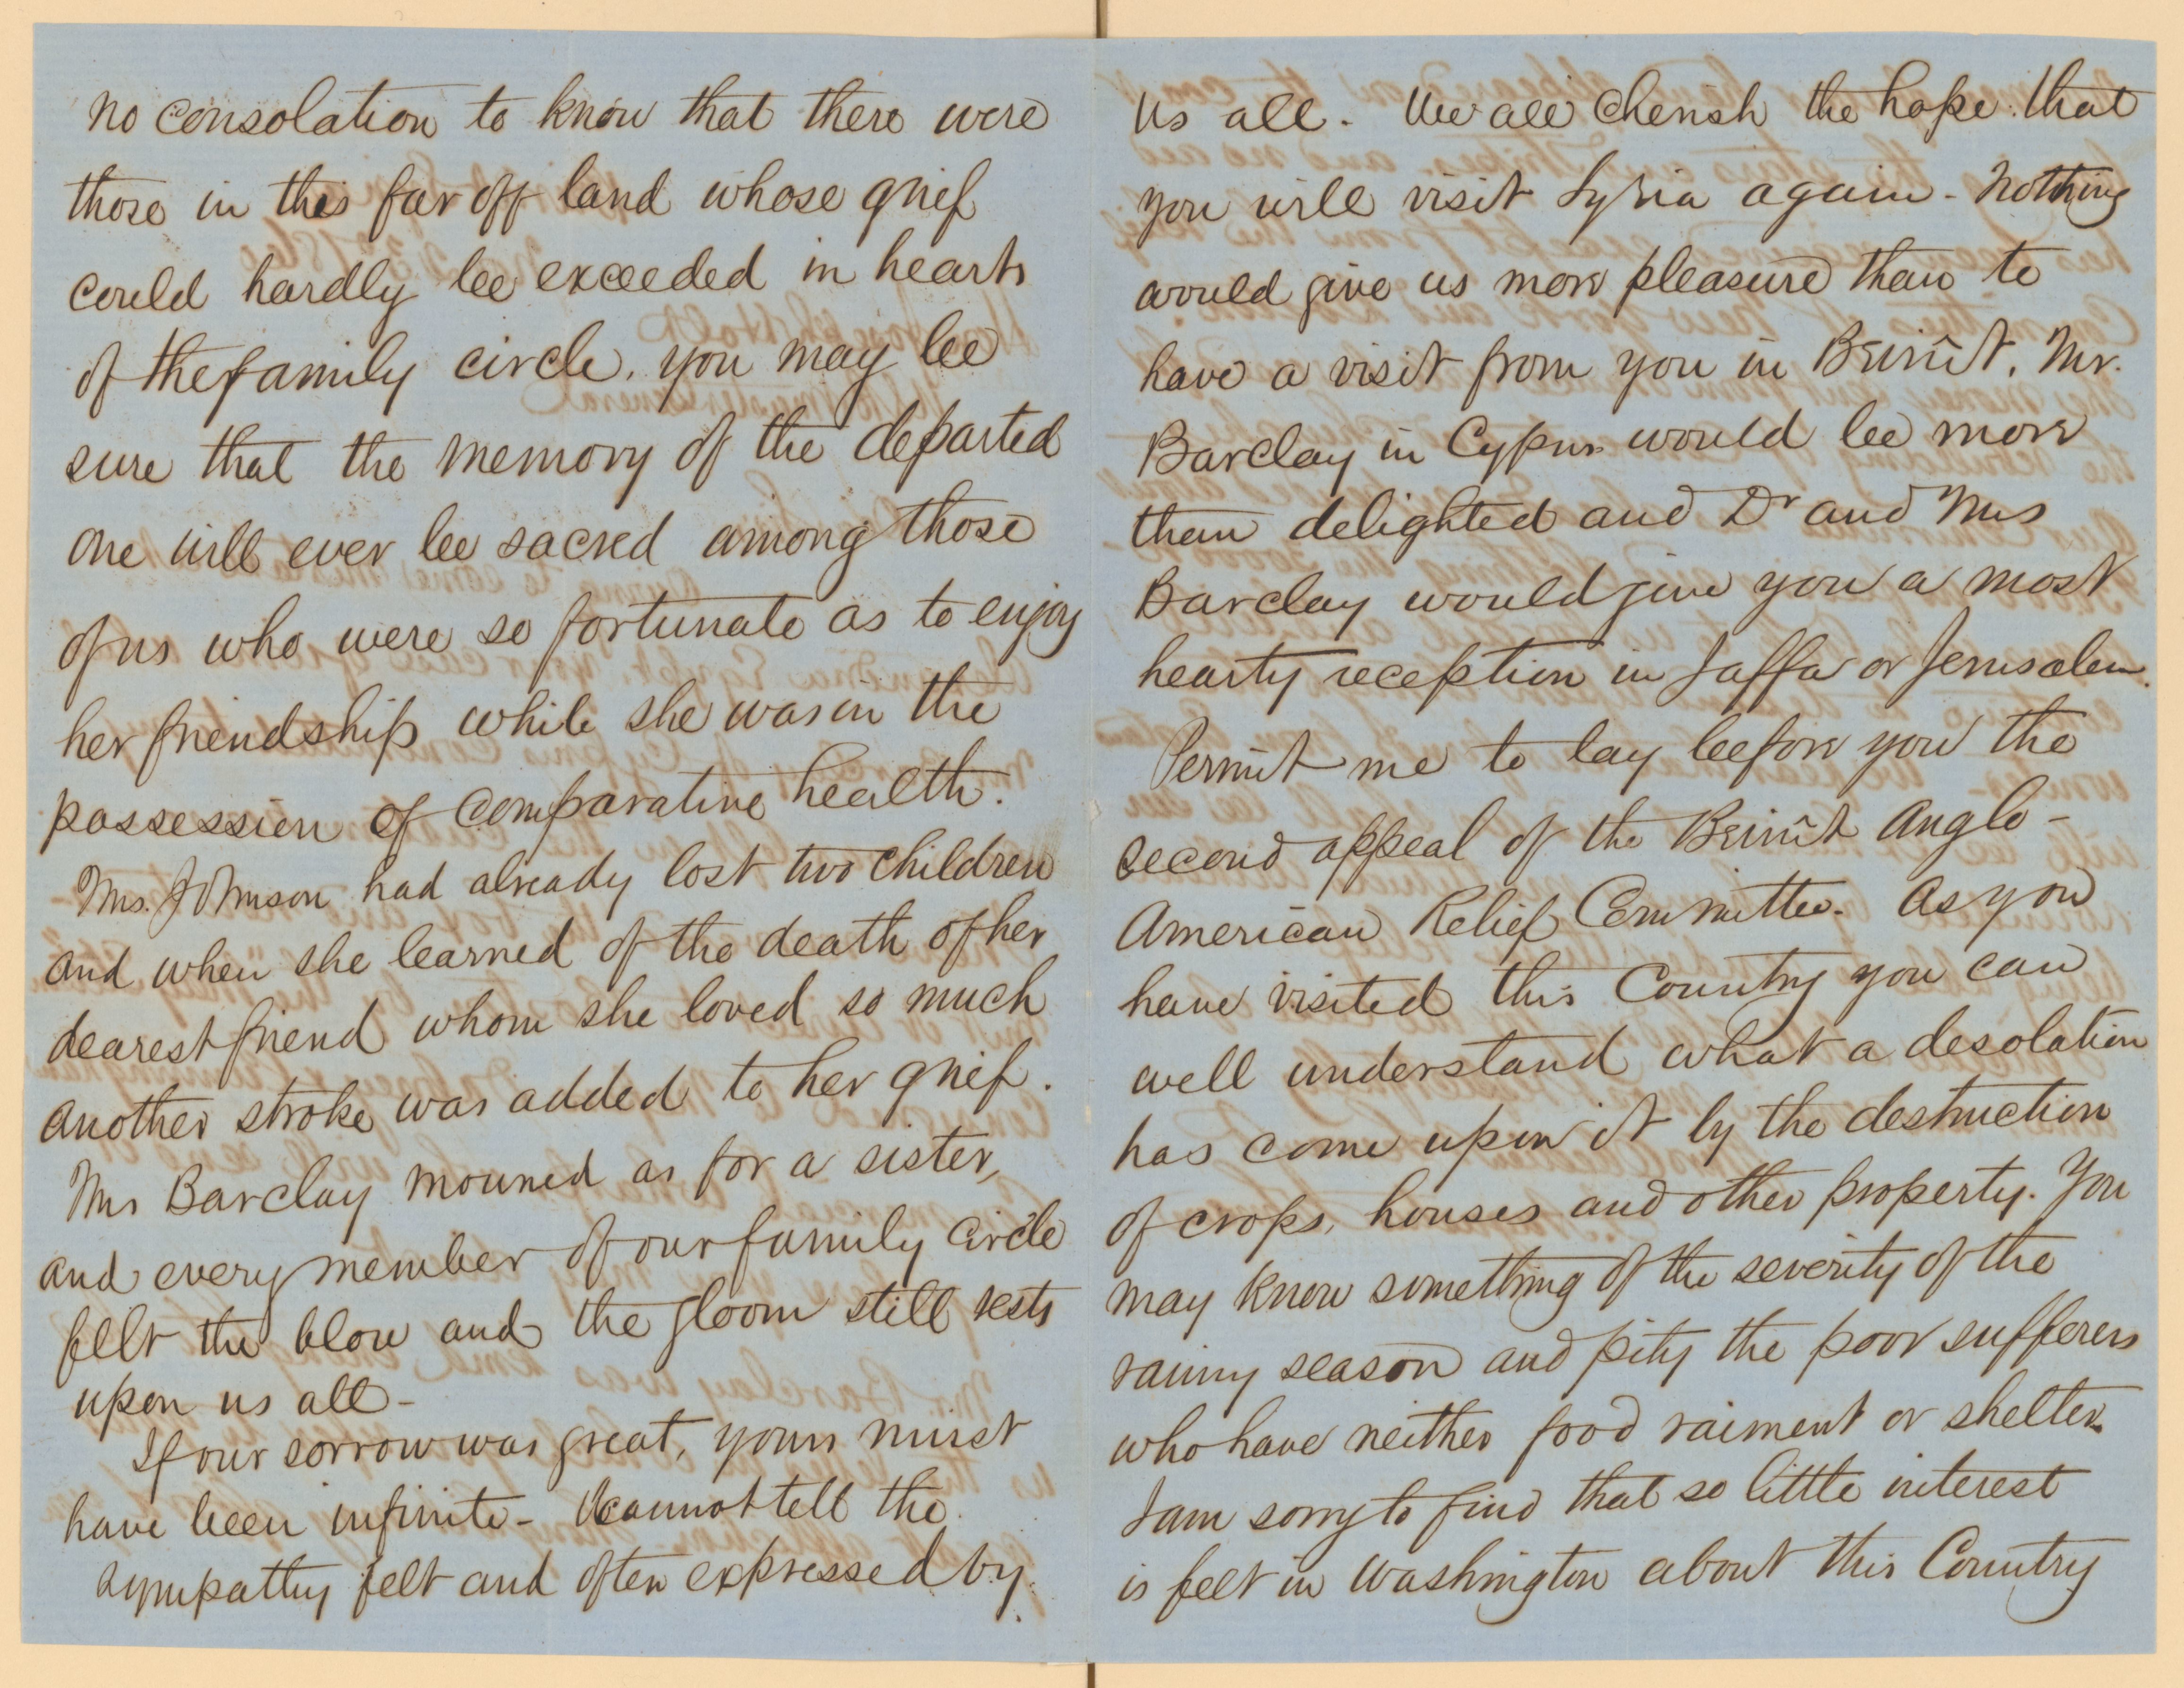 no consolation to know that there were
those in this far off land whose grief
could hardly be exceeded in hearts
of the family circle. you may be
sure that the memory of the departed
one will ever be sacred among those
of us who were so fortunate as to enjoy
her friendship while she was in the
possession of comparative health.
Mrs. Johnson had already lost two children
and when she learned of the death of her
dearest friend whom she loved so much
another stroke was added to her grief.
Mrs Barclay mourned as for a sister,
and every member of our family circle
felt the blow and the gloom still rests
upon us all -
If our sorrow was great, yours must
have been infinite - I cannot tell the
sympathy felt and often expressed by
us all. We all cherish the hope that
you will visit Syria again - Nothing
would give us more pleasure than to
have a visit from you in Beirût. Mr.
Barclay in Cyprus would be more
than delighted and Dr and Mrs
Barclay would give you a most
hearty reception in Jaffa or Jerusalem.
Permit me to lay before you the
second appeal of the Beirût Anglo-
American Relief Committee. As you
have visited this Country you can
well understand what a desolation
has come upon it by the destruction
of crops, houses and other property. You
may know something of the severity of the
rainy season and pity the poor sufferers
who have neither food raiment or shelter.
I am sorry to find that so little interest
is felt in Washington about this Country